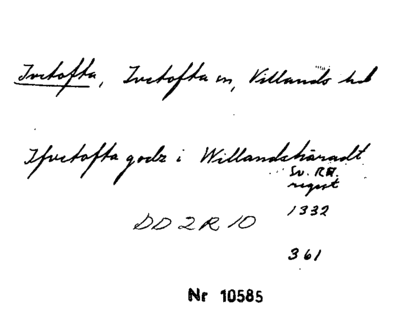 Ivetofta, Ivetofta sn, Villands hd
Ifvetofta godz i Willandshäradt
Sv. RA.
regest
1332
DD 2 R 10
361
Nr 10585